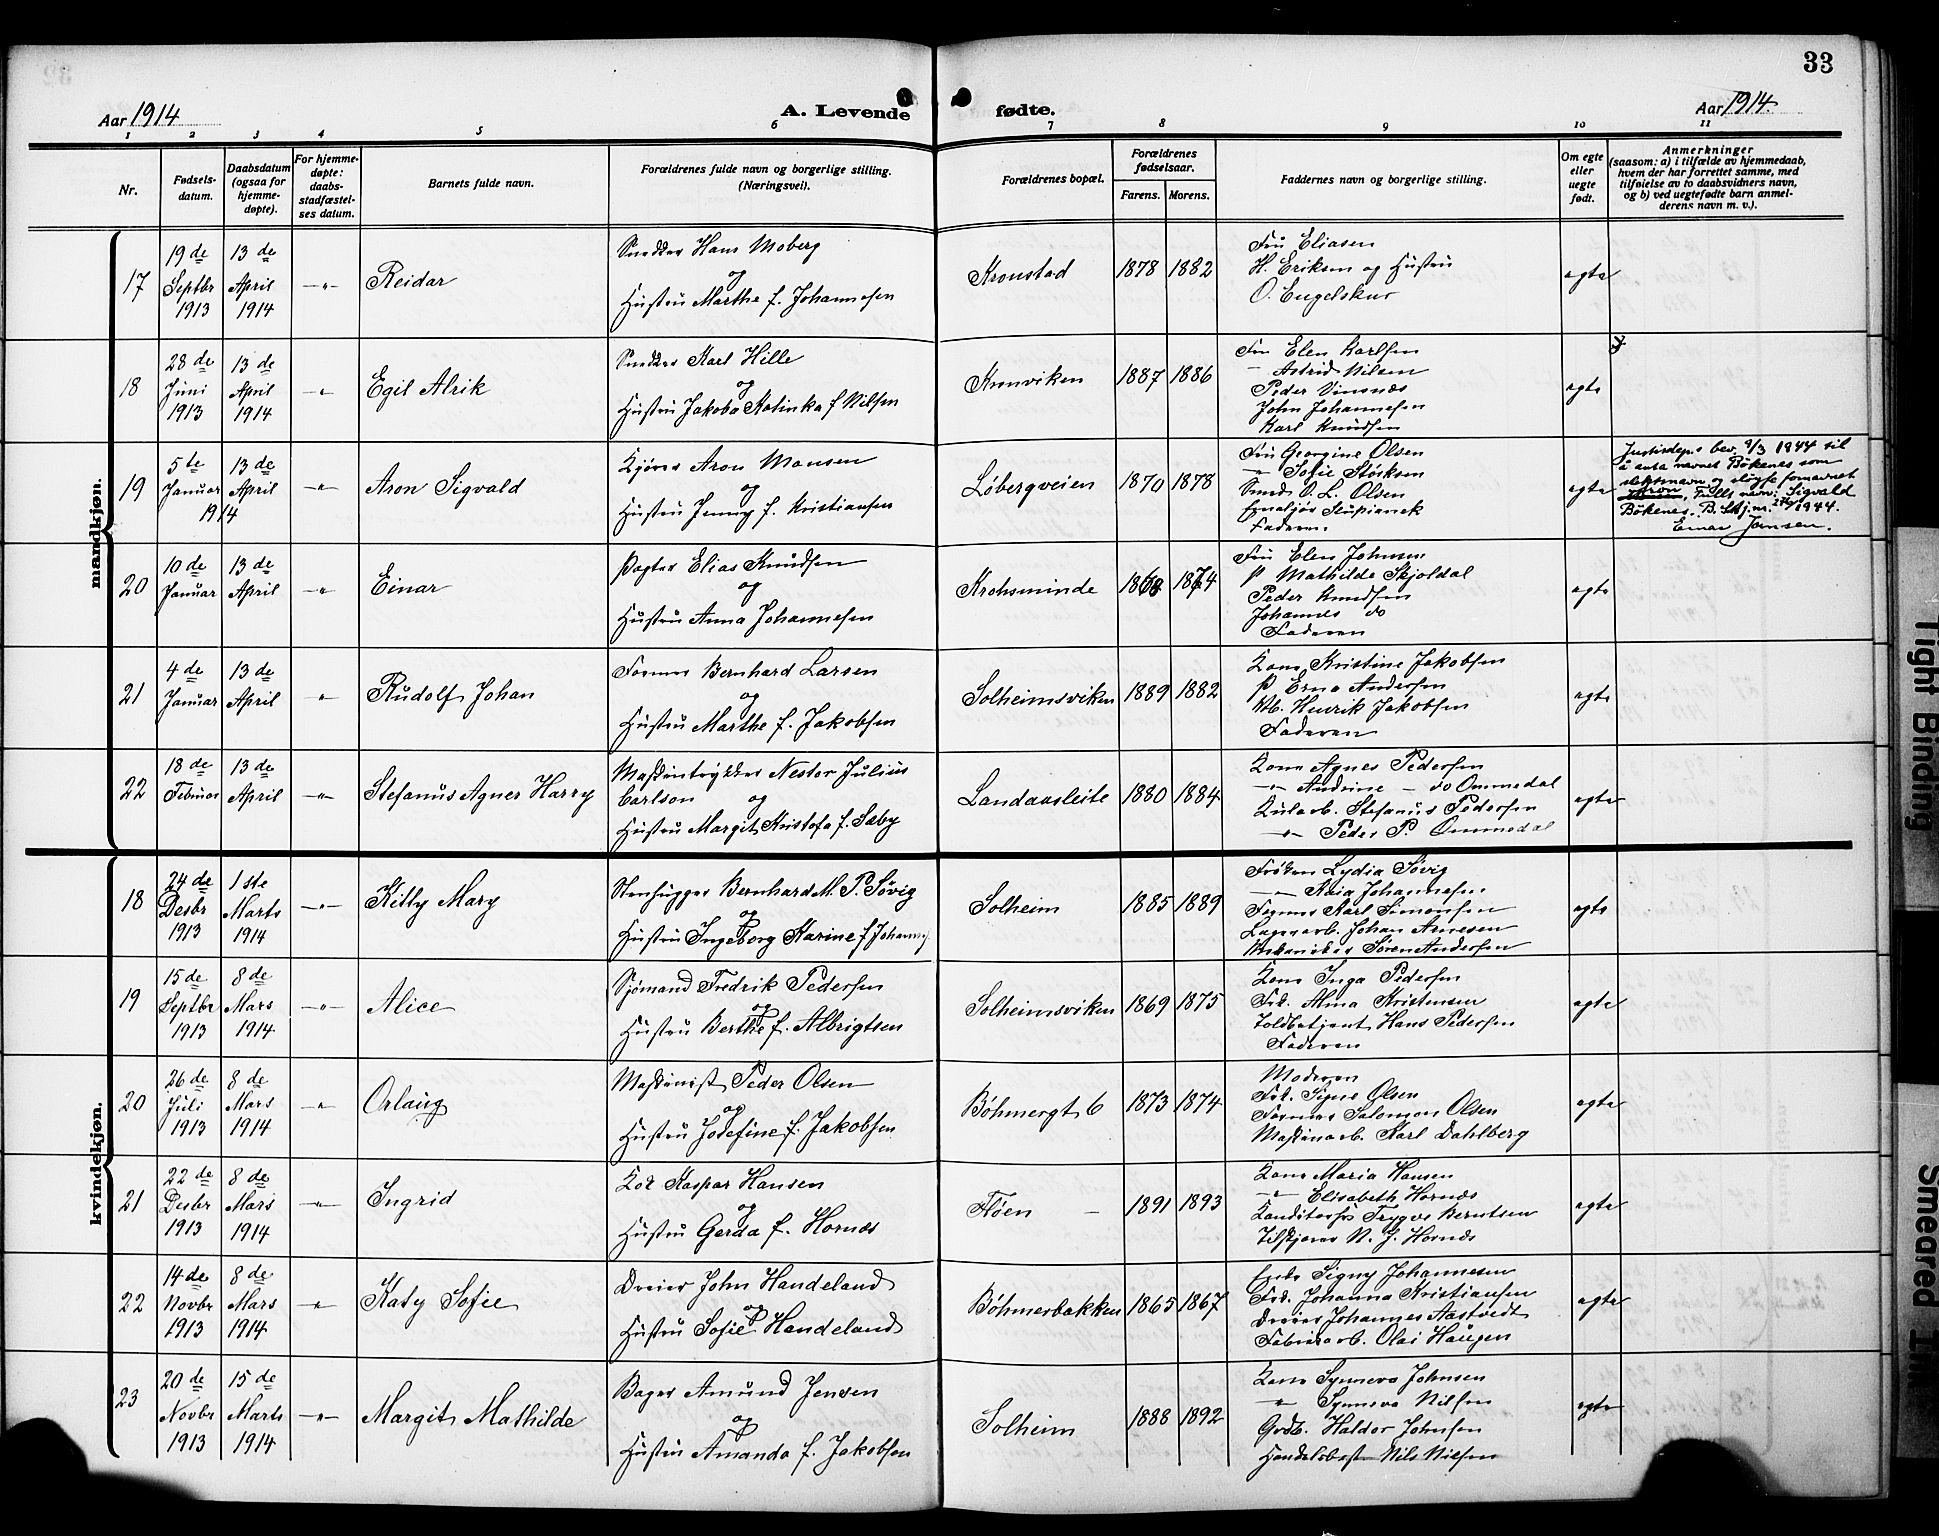 33
Aar 1914 A. Levende fødte. Aar 1914.
1 2 3 4 5 6 7 8 9 10 11
Nr.
Fødsels-
datum.
Daabsdatum
(ogsaa for
hjemme-
døpte).
For hjemme-
døpte:
daabs-
stadfæstel-
ses datum.
Barnets fulde navn.
Forældrenes fulde navn og borgerlige stilling.
(Næringsvei).
Forældrenes bopæl.
Forældrenes
fødselsaar.
Farens. Morens.
Faddernes navn og borgerlige stilling.
Om egte
eller
uegte
født.
Anmerkninger
(saasom: a) i tilfælde av hjemmedaab,
hvem der har forrettet samme, med
tilføielse av to daabsvidners navn,
og b) ved uegtefødte barn anmel-
derens navn m. v.).
mandkjøn.
17
19 de
Septbr
1913
13 de
April
1914
—"—
Reidar
Snekker Hans Moberg
og
Hustru Marthe f. Johannesen
Kronstad
1878 1882
Fru Eliasen
H. Eriksen og Hustru
O. Engelskur
egte
18
28 de
Juni
1913
13 de
April
1914
—"—
Egil Alrik
Snekker Karl Hille
og
Hustru Jakoba Katinka f Nilsen
Kronviken
1887 1886
Fru Elen Karlsen
— Astrid Nilsen
Peder Vinsnæs
John Johannesen
Karl Knudsen
egte
19
5 te
Januar
1914
13 de
April
—"—
Aron Sigvald
Kjører Aron Monsen
og
Hustru Jenny f. Kristiansen
Løbergveien
1870 1878
Fru Georgine Olsen
—"— Sofie Størksen
Smed O. L. Olsen
Faderen
egte
Justisdeps bev. 9/3 1944 til
å anta navnet Bökenes som
slektsnavn og sløyfe fornavnet
Aron. Fulls navn: Sigvald
Bökenes. B. skj.nr. 1944.
Einar Jansen.
20
10 de
Januar
13 de
April
—"—
Einar
Pagter Elias Knudsen
og
Hustru Anna Johannesen
Krohsminde
1868 1874
Fru Elen Johnsen
P Mathilde Skjoldal
Peder Knudsen
Johannes do
Faderen
egte
21
4 de
Januar
13 de
April
—"—
Rudolf Johan
Former Bernhard Larsen
og
Hustru Marthe f. Jakobsen
Solheimsviken
1889 1882
Kone Kristine Jakobsen
P Erna Andersen
Henrik Jakobsen
Faderen
egte
22
18 de
Februar
13 de
April
—"—
Stefanus Agner Harry
Maskintrykker Nestor Julius
Carlson og
Hustru Margit Kristofa f. Sæby
Landaasleite
1880 1884
Kone Agnes Pedersen
—"— Andrine — do Ommedal
Kularb. Stefanus Pedersen
—"— Peder P. Ommedal
egte
kvindekjøn.
18
24 de
Desbr
1913
1 ste
Marts
1914
—"—
Kitty Mary
Stenhugger Bernhard M. P. Søvig
og
Hustru Ingeborg Karine f Johannes.
Solheim
1885 1889
Frøken Lydia Søvig
—"— Raia Johannesen
Karl Simonsen
Lagerarb. Johan Arnesen
Mekaniker Søren Andersen
egte
19
15 de
Septbr
1913
8 de
Mars
1914
—"—
Alice
Sjømand Fredrik Pedersen
og
Hustru Berthe f. Albrigtsen
Solheimsviken
1869 1875
Kone Inga Pedersen
Frk. Alma Kristensen
Toldbetjent Hans Pedersen
Faderen
egte
20
26 de
Juli
1913
8 de
Mars
1914
—"—
Orlaug
Maskinist Peder Olsen
og
Hustru Josefine f. Jakobsen
Böhmergt 6
1873 1874
Moderen
Frk. Signe Olsen
Former Salomon Olsen
Maskinarb. Karl Dahlberg
egte
21
22 de
Desbr
1913
8 de
Mars
1914
—"—
Ingrid
Kok Kaspar Hansen
og
Hustru Gerda f. Hornæs
Fløen —
1891 1893
Kone Maria Hansen
—"— Elisabeth Hornæs
Trygve Berntsen
Tilskjærer N. J. Hornæs
egte
22
14 de
Novbr
1913
8 de
Mars
1914
—"—
Katy Sofie
Dreier John Handeland
og
Hustru Sofie Handeland
Böhmerbakken
1865 1867
Enke Signy Johannesen
Frk. Johanna Kristiansen
Dreier Johannes Aastvedt
Fabrikarb. Olai Haugen
egte
23
20 de
Novbr
1913
15 de
Marts
1914
—"—
Margit Mathilde
Bager Amund Jensen
og
Hustru Amanda f. Jakobsen
Solheim
1888 1892
Kone Synneva Johnsen
—"— Synneva Nilsen
Grdb. Haldor Johnsen
Handelsbest. Nils Nilsen
egte
Tight Binding
Smeared Ink